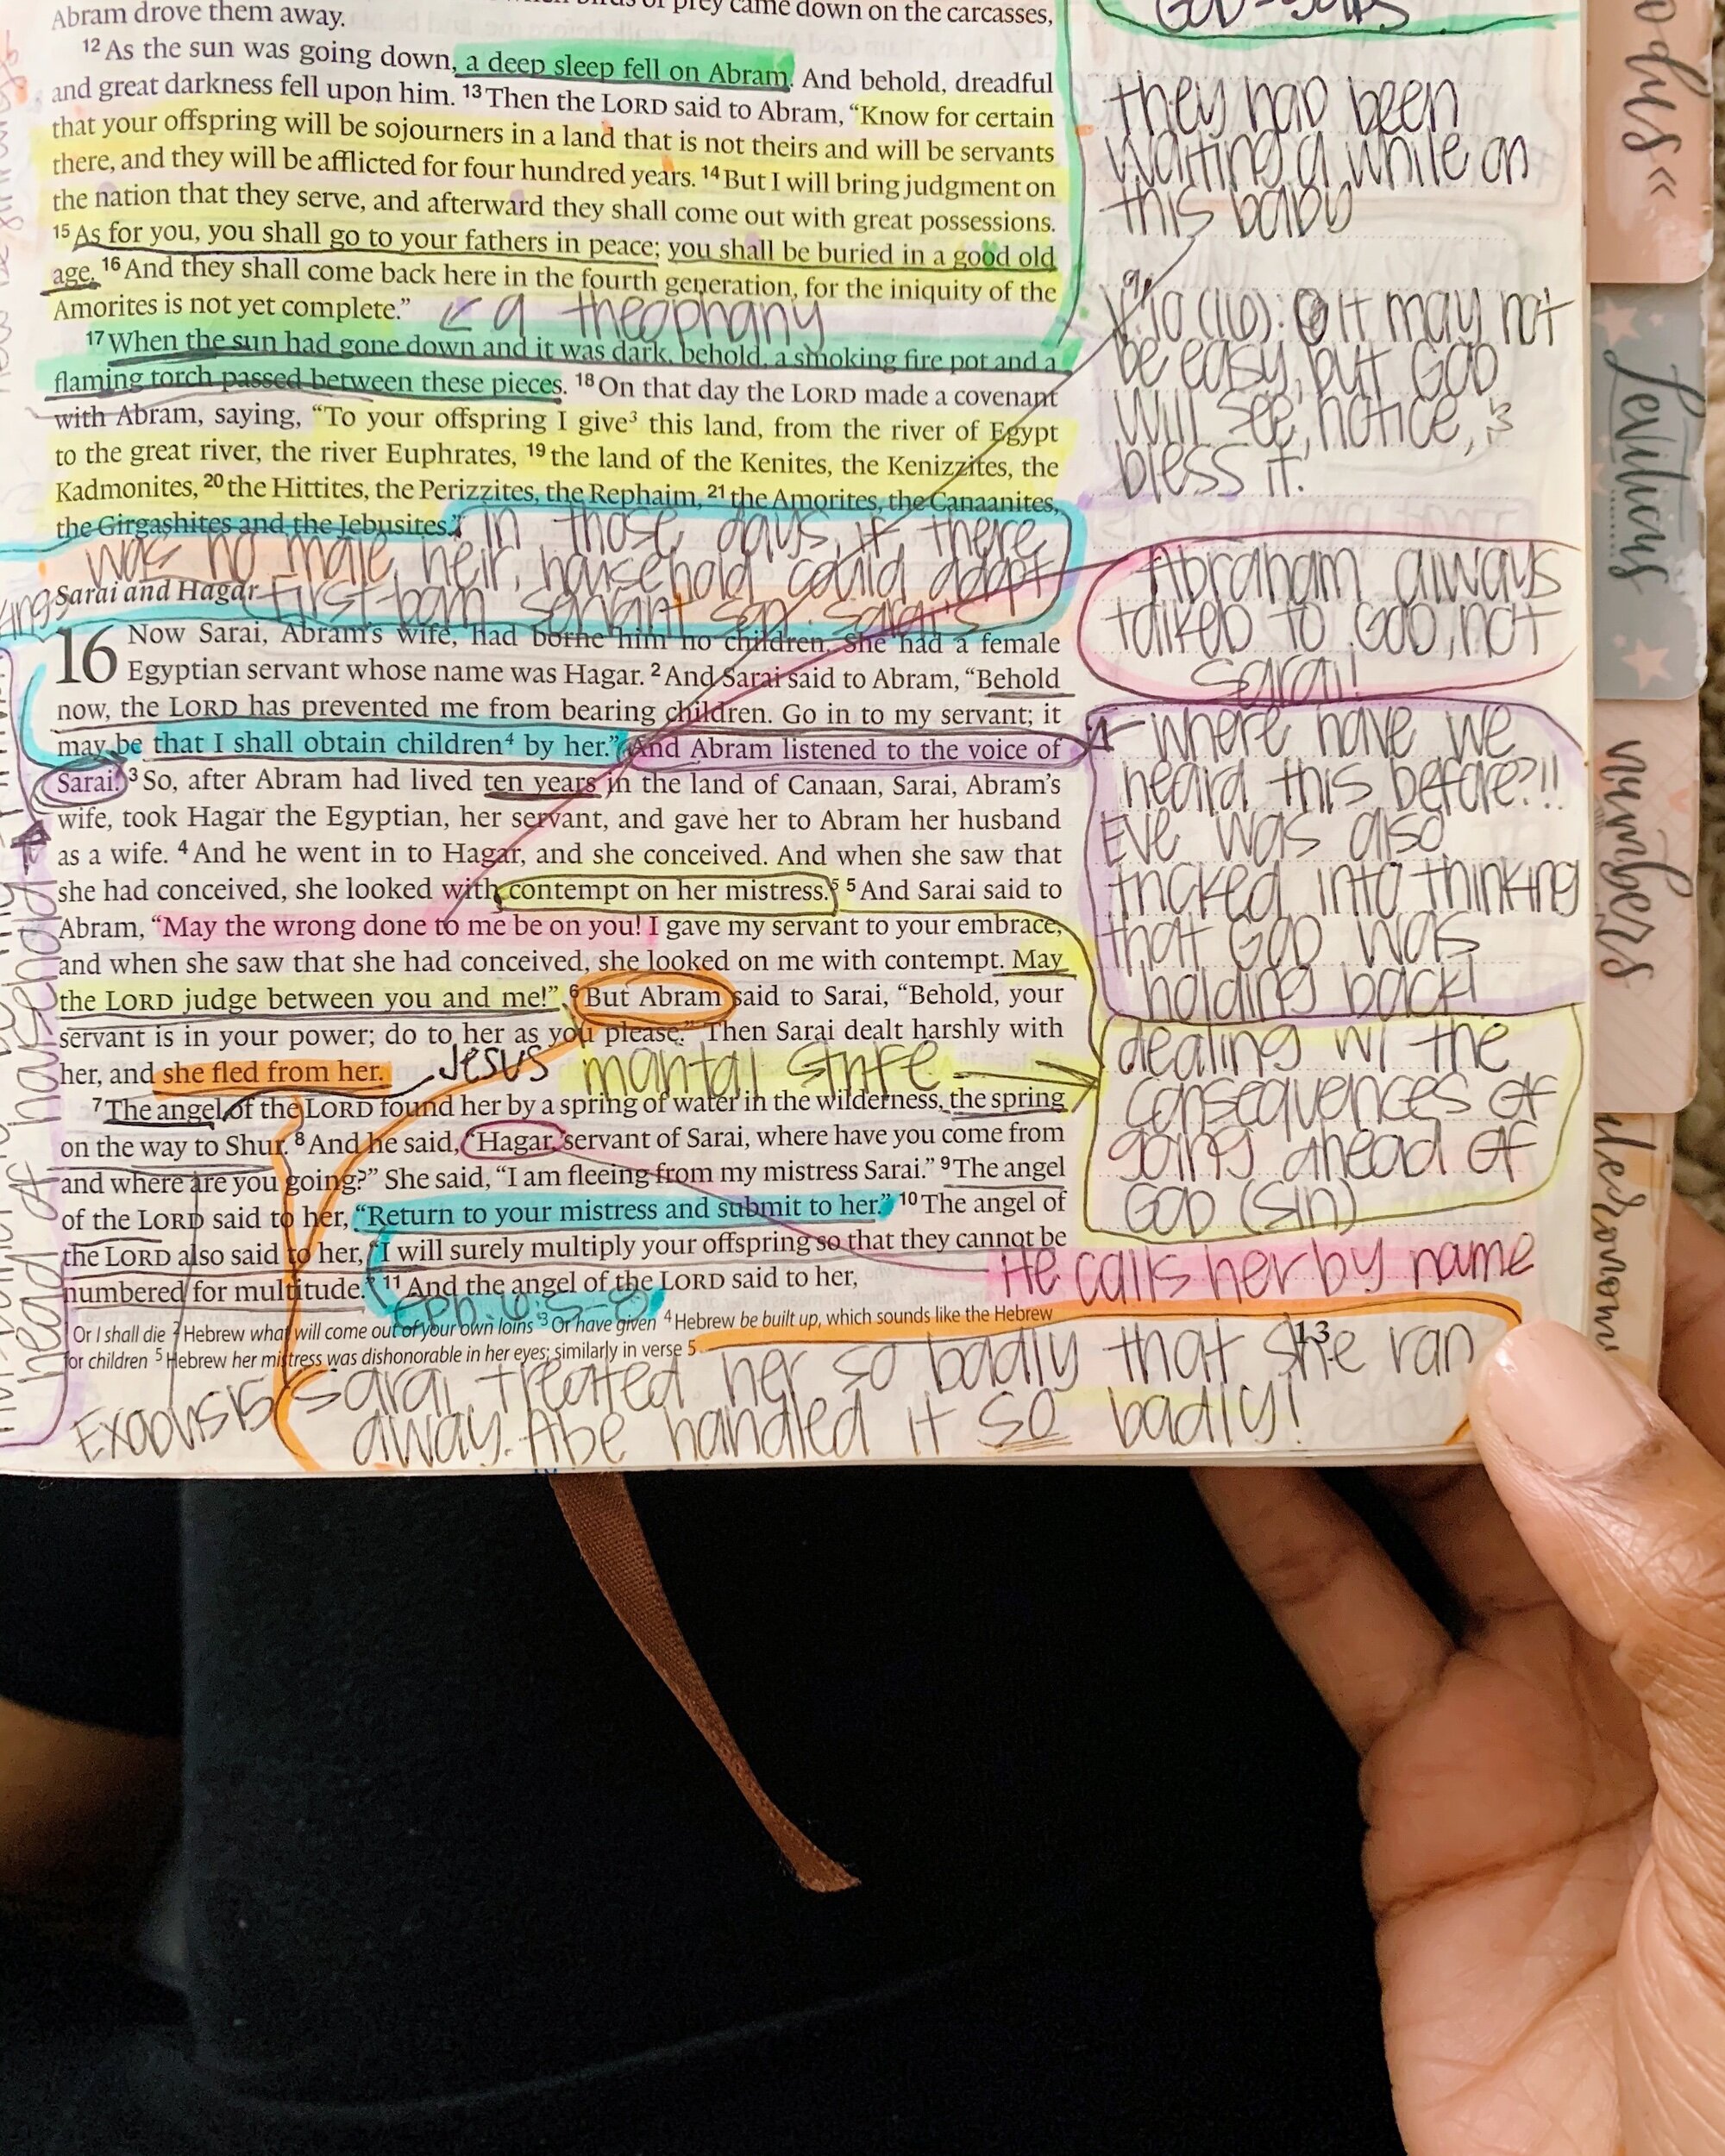 prey came down on the carcasses,
Abram drove them away.
12 As the sun was going down, a deep sleep fell on Abram. And behold, dreadful
and great darkness fell upon him. 13 Then the LORD said to Abram, “Know for certain
that your offspring will be sojourners in a land that is not theirs and will be servants
there, and they will be afflicted for four hundred years. 14 But I will bring judgment on
the nation that they serve, and afterward they shall come out with great possessions.
15 As for you, you shall go to your fathers in peace; you shall be buried in a good old
age. 16 And they shall come back here in the fourth generation, for the iniquity of the
Amorites is not yet complete.”
a theophany
17 When the sun had gone down and it was dark, behold, a smoking fire pot and a
flaming torch passed between these pieces. 18 On that day the LORD made a covenant
with Abram, saying, “To your offspring I give3 this land, from the river of Egypt
to the great river, the river Euphrates, 19 the land of the Kenites, the Kenizzites, the
Kadmonites, 20 the Hittites, the Perizzites, the Rephaim, 21 the Amorites, the Canaanites,
the Girgashites and the Jebusites.”
in those days, if there
was no male heir, household could adopt
first-born servant son. Sarai's
Sarai and Hagar
16 Now Sarai, Abram’s wife, had borne him no children. She had a female
Egyptian servant whose name was Hagar. 2 And Sarai said to Abram, “Behold
now, the LORD has prevented me from bearing children. Go in to my servant; it
may be that I shall obtain children4 by her.” And Abram listened to the voice of
Sarai. 3 So, after Abram had lived ten years in the land of Canaan, Sarai, Abram’s
wife, took Hagar the Egyptian, her servant, and gave her to Abram her husband
as a wife. 4 And he went in to Hagar, and she conceived. And when she saw that
she had conceived, she looked with contempt on her mistress.5 5 And Sarai said to
Abram, “May the wrong done to me be on you! I gave my servant to your embrace,
and when she saw that she had conceived, she looked on me with contempt. May
the LORD judge between you and me!” 6 But Abram said to Sarai, “Behold, your
servant is in your power; do to her as you please.” Then Sarai dealt harshly with
her, and she fled from her.
Jesus
marital strife
7 The angel of the LORD found her by a spring of water in the wilderness, the spring
on the way to Shur. 8 And he said, “Hagar, servant of Sarai, where have you come from
and where are you going?” She said, “I am fleeing from my mistress Sarai.” 9 The angel
of the LORD said to her, “Return to your mistress and submit to her.” 10 The angel of
the LORD also said to her, “I will surely multiply your offspring so that they cannot be
numbered for multitude.” 11 And the angel of the LORD said to her,
Eph. 6:5-8
Or I shall die 2 Hebrew what will come out of your own loins 3 Or have given 4 Hebrew be built up, which sounds like the Hebrew
for children 5 Hebrew her mistress was dishonorable in her eyes; similarly in verse 5
13
Exodus 15
Sarai treated her so badly that she ran
away. Abe handled it so badly!
they had been
waiting a while on
this baby
V. 10 (16): it may not
be easy, but God
will see, notice, &
bless it.
Abraham always
talked to God, not
Sarai!
where have we
heard this before?!!
Eve was also
tricked into thinking
that God was
holding back!
dealing w/ the
consequences of
going ahead of
God (sin)
He calls her by name
head of household
odus <<
Leviticus
numbers